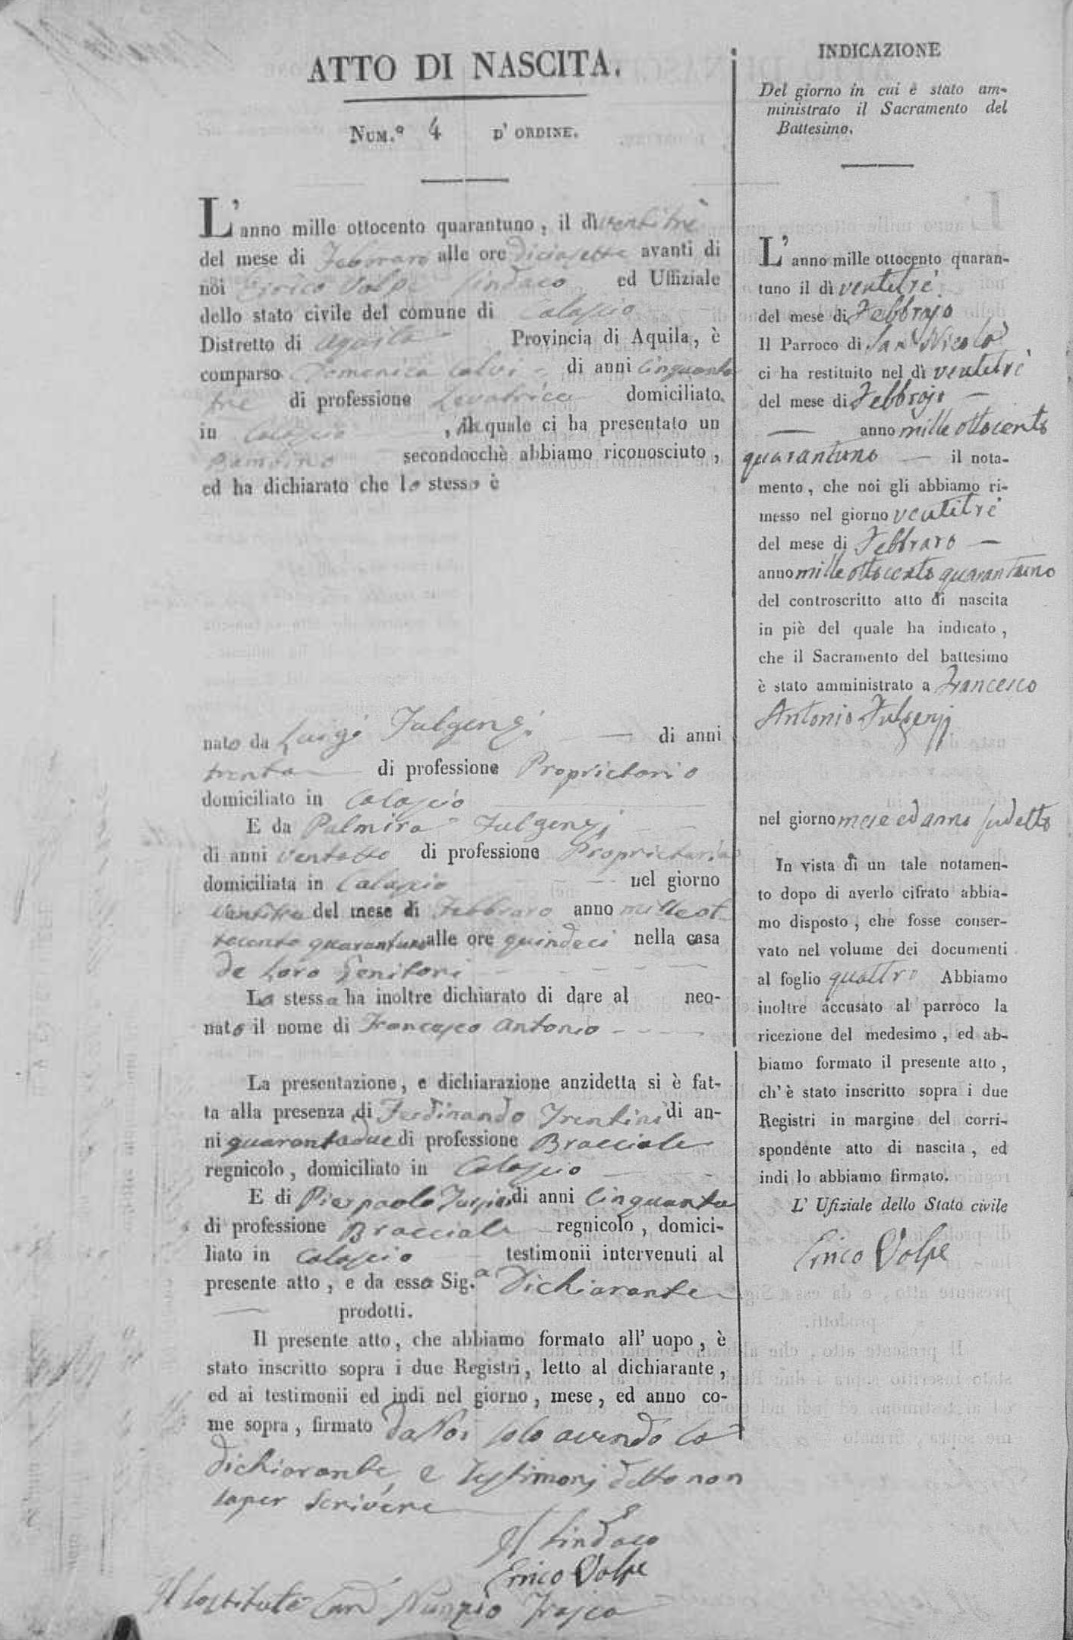 ATTO DI NASCITA.
NUM.º 4 D' ORDINE.
L'anno mille ottocento quarantuno, il dì ventitrè
del mese di Febbraro alle ore diciasette avanti di
noi Errico Volpe Sindaco ed Uffiziale
dello stato civile del comune di Calascio
Distretto di Aquila Provincia di Aquila, è
comparso Domenica Calvi di anni Cinquanta
tre di professione Levatrice domiciliata
in Calascio, la quale ci ha presentato un
Bambino secondocchè abbiamo riconosciuto,
ed ha dichiarato che lo stesso è
nato da Luigi Fulgenzj di anni
trenta di professione Proprietario
domiciliato in Calascio
E da Palmira Fulgenzj
di anni ventotto di professione Proprietaria
domiciliata in Calascio nel giorno
ventitre del mese di Febbraro anno milleot
tocento quarantuno alle ore quindeci nella casa
de loro Genitori
La stessa ha inoltre dichiarato di dare al neo-
nato il nome di Francesco Antonio
La presentazione, e dichiarazione anzidetta si è fat-
ta alla presenza di Ferdinando Trentini di an-
ni quarantadue di professione Bracciale
regnicolo, domiciliato in Calascio
E di Pierpaolo di anni Cinquanta
di professione Bracciale regnicolo, domici-
liato in Calascio testimonii intervenuti al
presente atto, e da essa Sig.a Dichiarante
prodotti.
Il presente atto, che abbiamo formato all' uopo, è
stato inscritto sopra i due Registri, letto al dichiarante,
ed ai testimonii ed indi nel giorno, mese, ed anno co-
me sopra, firmato da Noi solo avendo la
dichiarante, e Testimonj detto non
saper scrivere
Il Sindaco
Errico Volpe
Il Sostituto Can Nunzio Frasca
INDICAZIONE
Del giorno in cui è stato am-
ministrato il Sacramento del
Battesimo.
L'anno mille ottocento quaran-
tuno il dì ventitrè
del mese di Febbrajo
Il Parroco di San Nicola
ci ha restituito nel dì ventitrè
del mese di Febbrajo
anno mille ottocento
quarantuno il nota-
mento, che noi gli abbiamo ri-
messo nel giorno ventitrè
del mese di Febbraro
anno mille ottocento quarantuno
del controscritto atto di nascita
in piè del quale ha indicato,
che il Sacramento del battesimo
è stato amministrato a Francesco
Antonio Fulgenzj
nel giorno mese ed anno sudetto
In vista di un tale notamen-
to dopo di averlo cifrato abbia-
mo disposto, che fosse conser-
vato nel volume dei documenti
al foglio quattro Abbiamo
inoltre accusato al parroco la
ricezione del medesimo, ed ab-
biamo formato il presente atto,
ch' è stato inscritto sopra i due
Registri in margine del corri-
spondente atto di nascita, ed
indi lo abbiamo firmato.
L' Ufiziale dello Stato civile
Errico Volpe